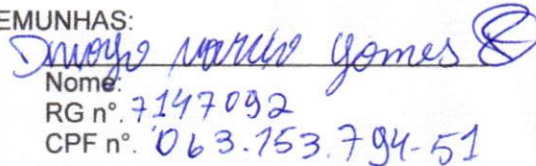 EMUNHAS:
Diogo Marcio Gomes
Nome:
RG n°. 7147092
CPF n°. 063.153.794-51